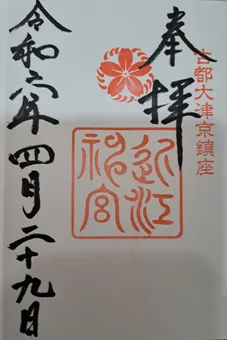 奉拝
古都大津京鎮座
近江神宮
令和六年四月二十九日